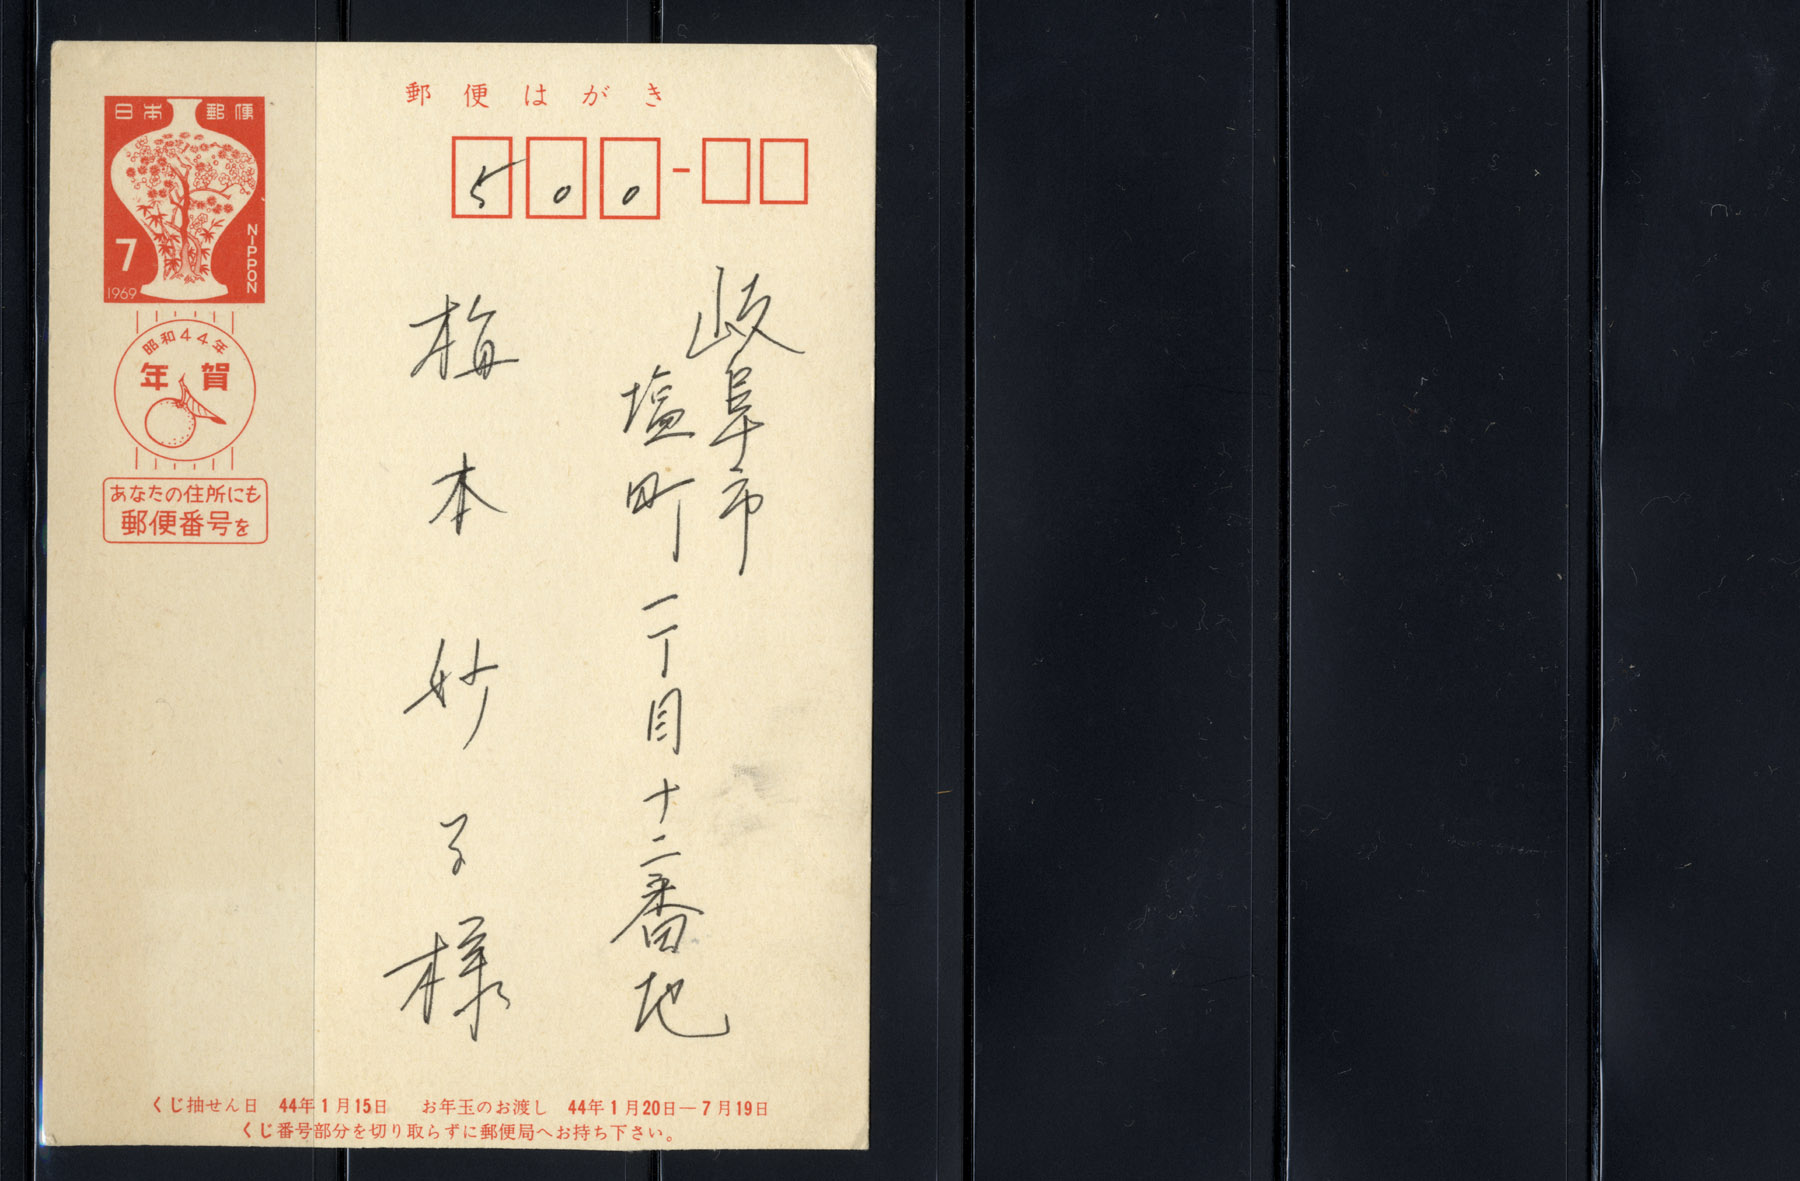 郵便はがき
500-
岐阜市
塩町一丁目十二番地
梅本妙子様
日本郵便
7
NIPPON
1969
昭和44年
年賀
あなたの住所にも
郵便番号を
くじ抽せん日 44年1月15日 お年玉のお渡し 44年1月20日―7月19日
くじ番号部分を切り取らずに郵便局へお持ち下さい。